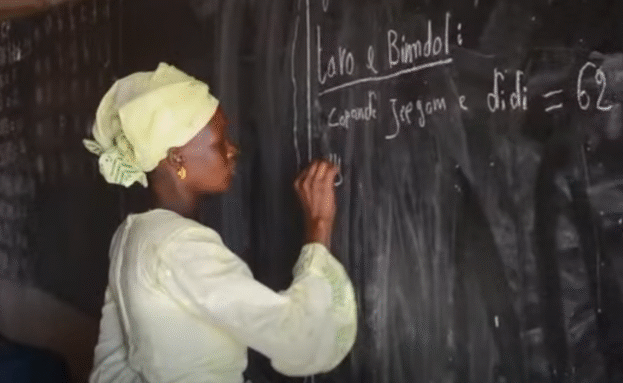 Taro e Binndol:
Capanɗe Jeegom e ɗiɗi = 62